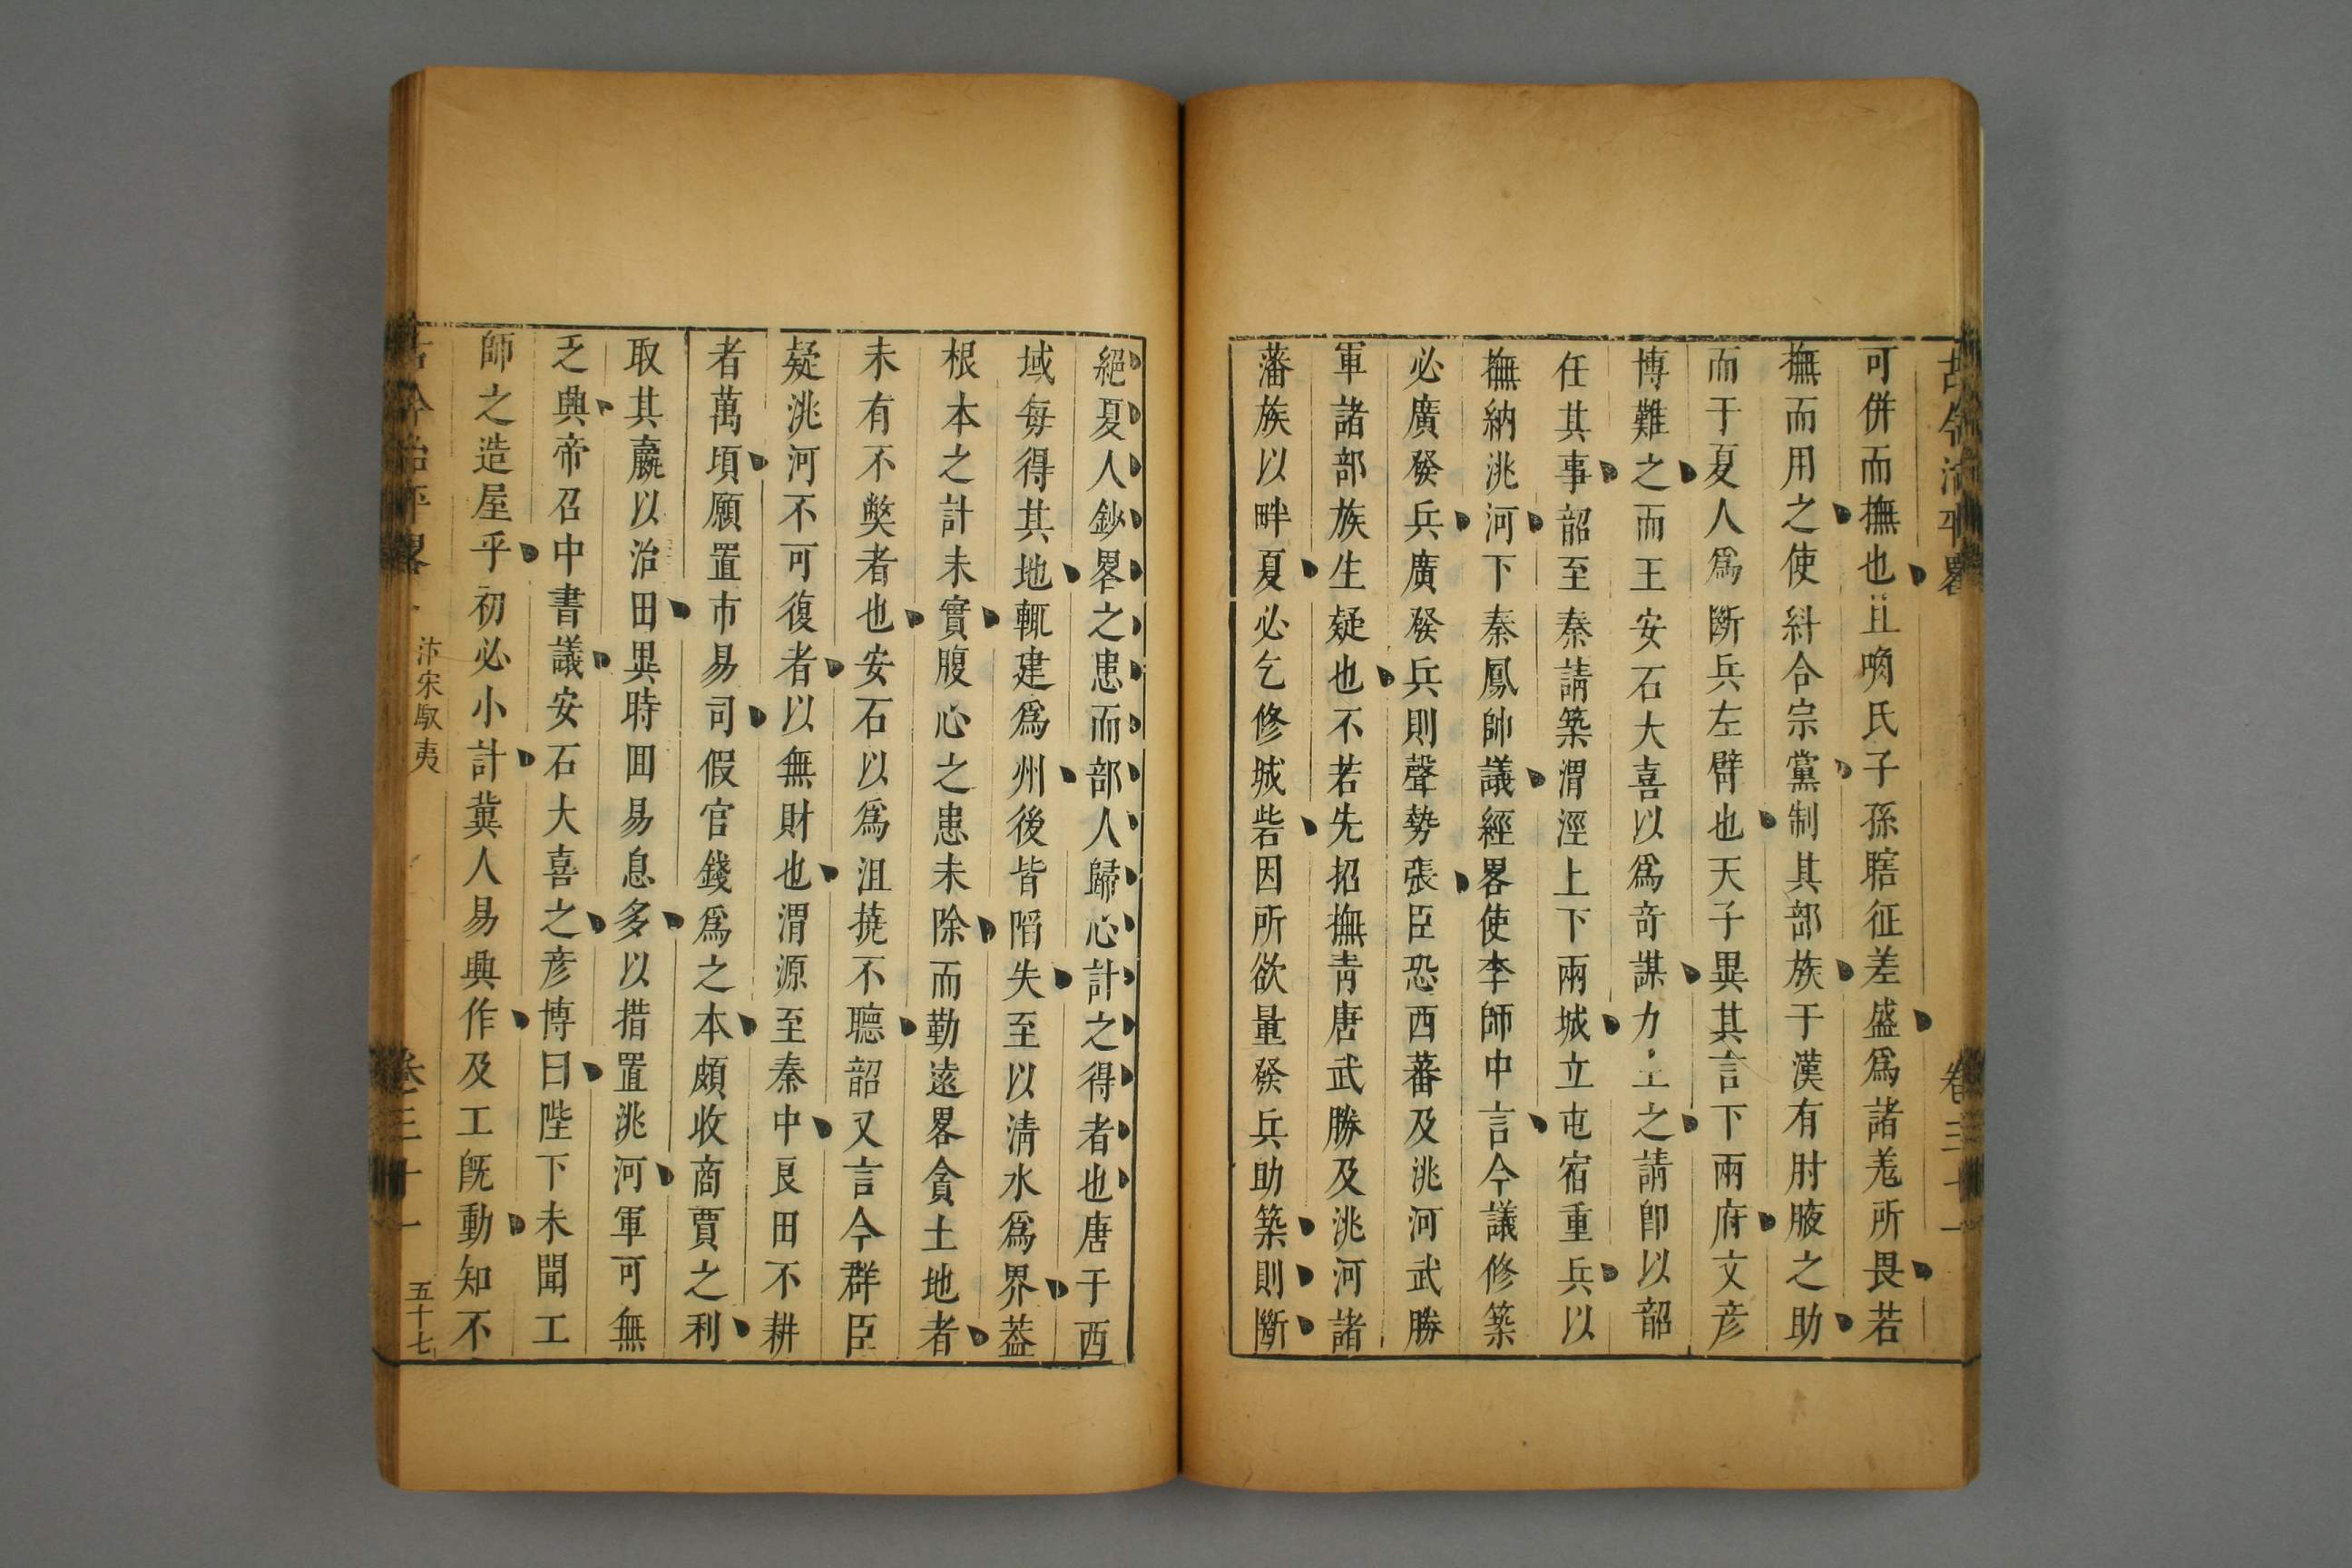 古今治平畧 卷三十一
可併而撫也且唃氏子孫瞎征差盛爲諸羌所畏若
撫而用之使糾合宗黨制其部族于漢有肘腋之助
而于夏人爲斷兵左臂也天子異其言下兩府文彦
博難之而王安石大喜以爲奇謀力主之請卽以韶
任其事韶至秦請築渭涇上下兩城立屯宿重兵以
撫納洮河下秦鳳帥議經畧使李師中言今議修築
必廣發兵廣發兵則聲勢張臣恐西蕃及洮河武勝
軍諸部族生疑也不若先招撫青唐武勝及洮河諸
藩族以畔夏必乞修城砦因所欲量發兵助築則斷
絕夏人鈔畧之患而部人歸心計之得者也唐于西
域每得其地輒建爲州後皆陷失至以清水爲界葢
根本之計未實腹心之患未除而勤遠畧貪土地者
未有不獘者也安石以爲沮撓不聽韶又言今群臣
疑洮河不可復者以無財也渭源至秦中良田不耕
者萬頃願置市易司假官錢爲之本頗收商賈之利
取其羸以治田異時囬易息多以措置洮河軍可無
乏興帝召中書議安石大喜之彦博曰陛下未聞工
師之造屋乎初必小計冀人易興作及工旣動知不
古今治平畧 汴宋馭夷 卷三十一 五十七